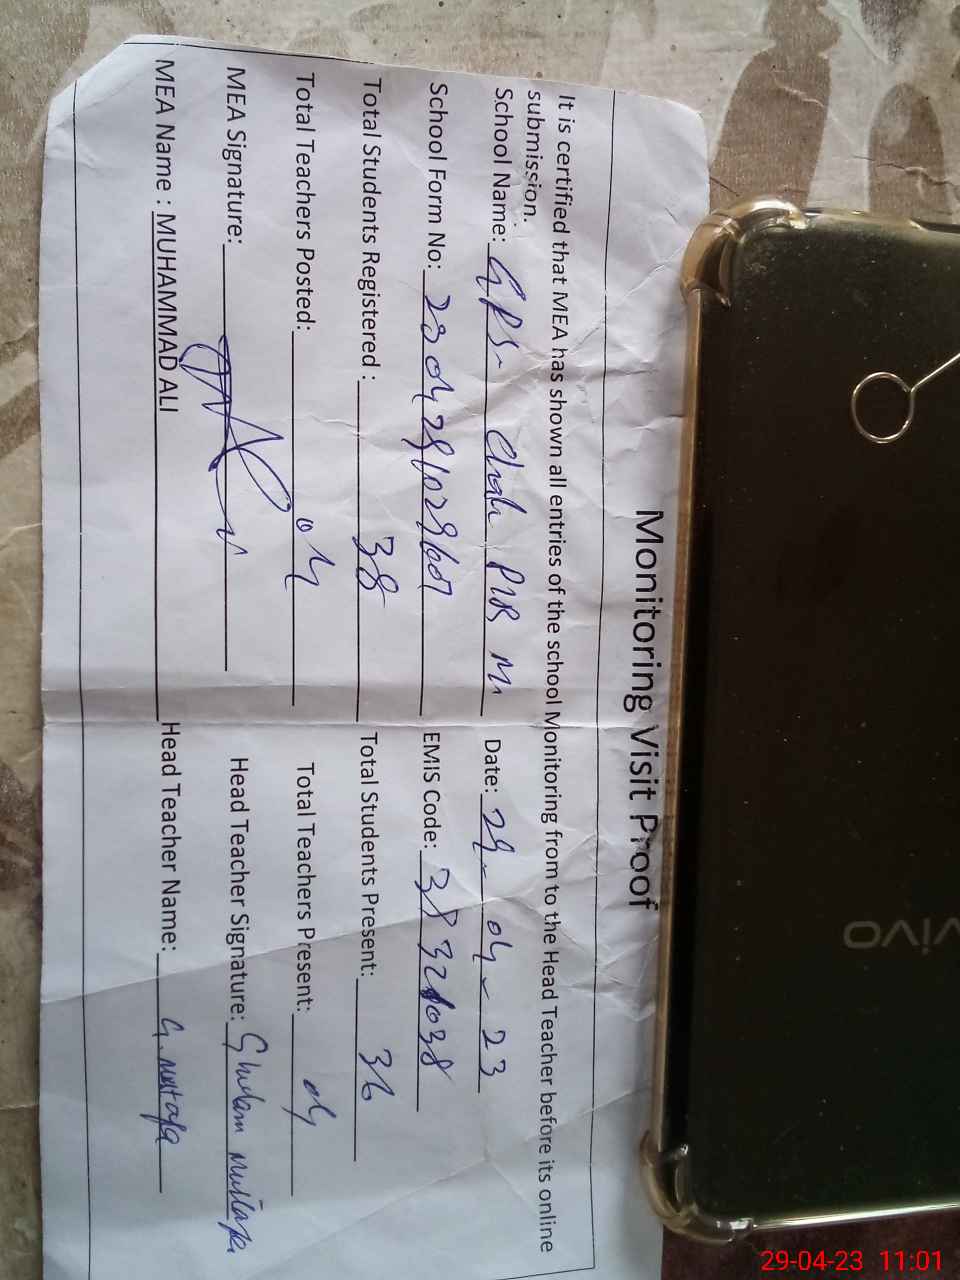 Monitoring Visit Proof
It is certified that MEA has shown all entries of the school Monitoring from to the Head Teacher before its online
submission.
School Name: GPS- Chak P18 M Date: 29-04-23
School Form No: EMIS Code: 38321038
Total Students Registered : 38 Total Students Present: 36
Total Teachers Posted: 04 Total Teachers Present: 04
MEA Signature: Head Teacher Signature: Ghulam Mustafa
MEA Name : MUHAMMAD ALI Head Teacher Name: G. Mustafa
vivo
29-04-23 11:01